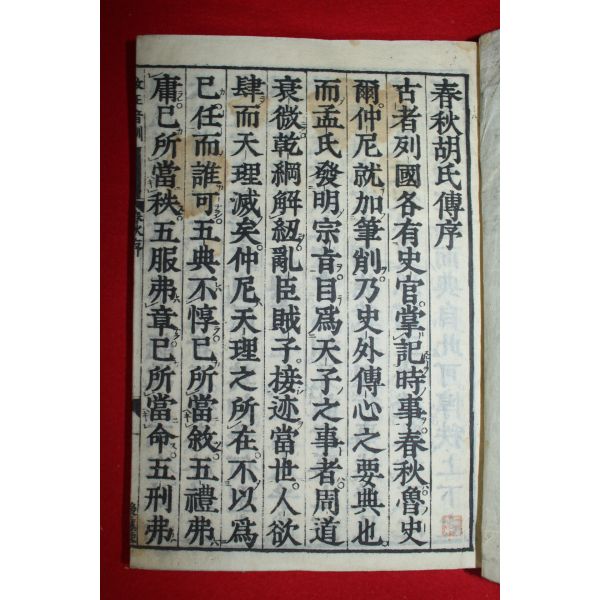 春秋胡氏傳序
古者列國各有史官掌記時事春秋魯史
爾仲尼就加筆削乃史外傳心之要典也
而孟氏發明宗旨目爲天子之事者周道
衰微乾綱解紐亂臣賊子接迹當世人欲
肆而天理滅矣仲尼天理之所在不以爲
已任而誰可五典不惇已所當敘五禮弗
庸已所當秩五服弗章已所當命五刑弗